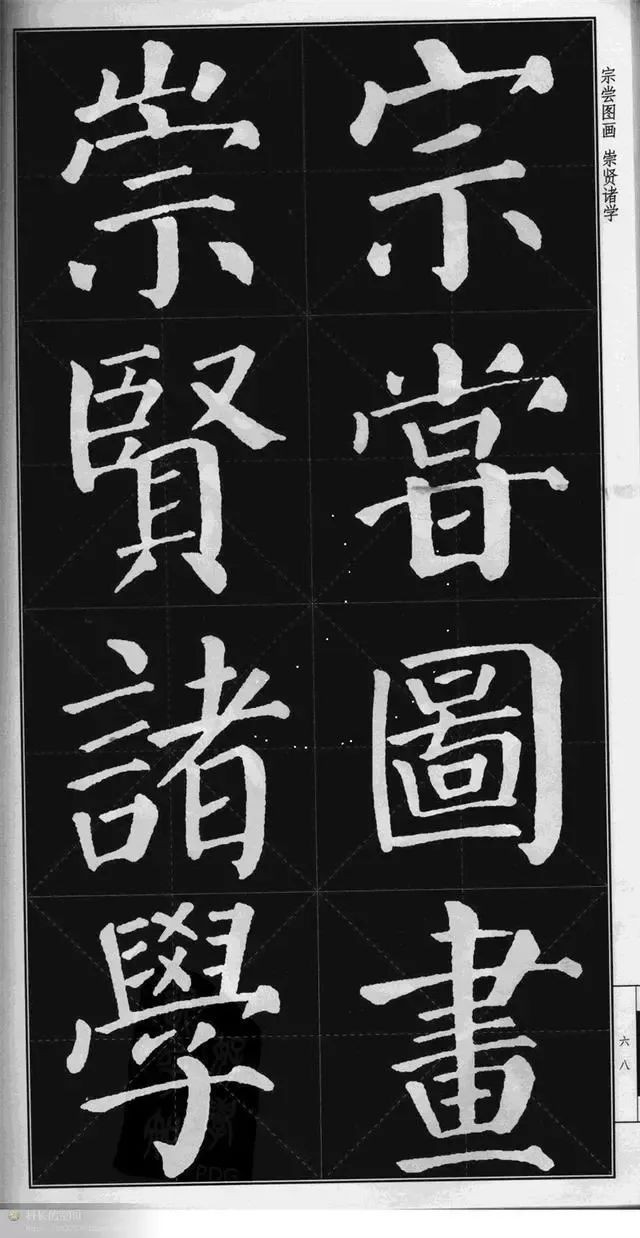 宗尝图画 崇贤诸学
宗甞圖畫
崇賢諸學
六八
PDG